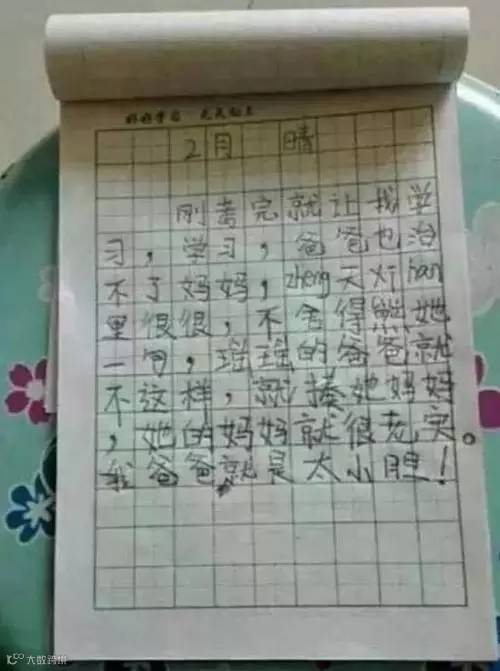 好好学习 天天向上
2月 晴
刚考完就让我学
习，学习，爸爸也治
不了妈妈，zheng天对han
里很很，不舍得熊她
一句，瑶瑶的爸爸就
不这样，就揍她妈妈
，她的妈妈就很老实。
我爸爸就是太小胆！
大数跨境